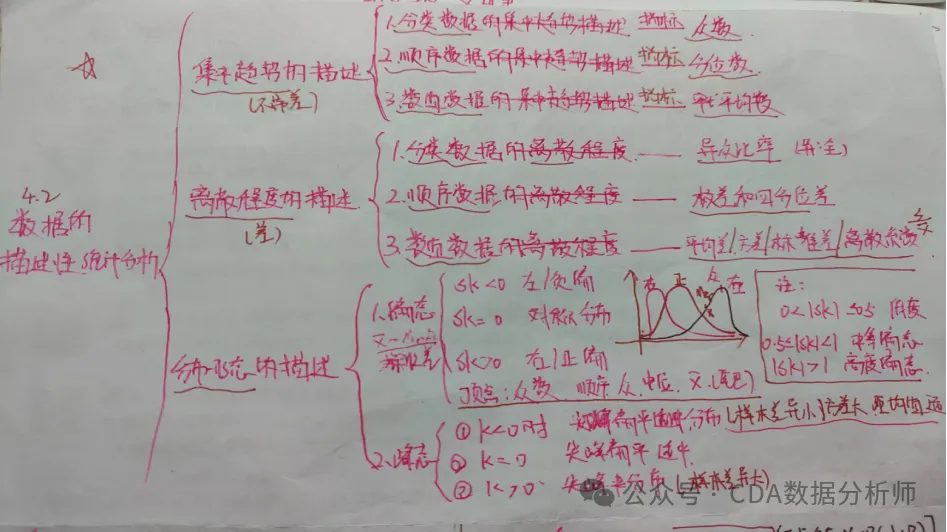 4.2
数据的
描述性统计分析
集中趋势的描述
(不带差)
1.分类数据的集中趋势描述 指标 众数
2.顺序数据的集中趋势描述 指标 分位数
3.数值数据的集中趋势描述 指标 平均数
离散程度的描述
(差)
1.分类数据的离散程度 —— 异众比率
2.顺序数据的离散程度 —— 极差和四分位差
3.数值数据的离散程度 —— 平均差/方差/标准差/离散系数
分布形态的描述
1.偏态
标准差
SK<0 左/负偏
SK=0 对称分布
SK>0 右/正偏
顶点:众数 顺序:众.中位.x̄(尾巴)
右 正 左
注:
0<|SK|≤0.5 低度
0.5<|SK|<1 中等偏态
|SK|>1 高度偏态
2.峰态
① K<0时 分布(样本差异小
② K=0 尖峰扁平适中
③ K>0 尖峰 (样本差异大)
公众号 · CDA数据分析师